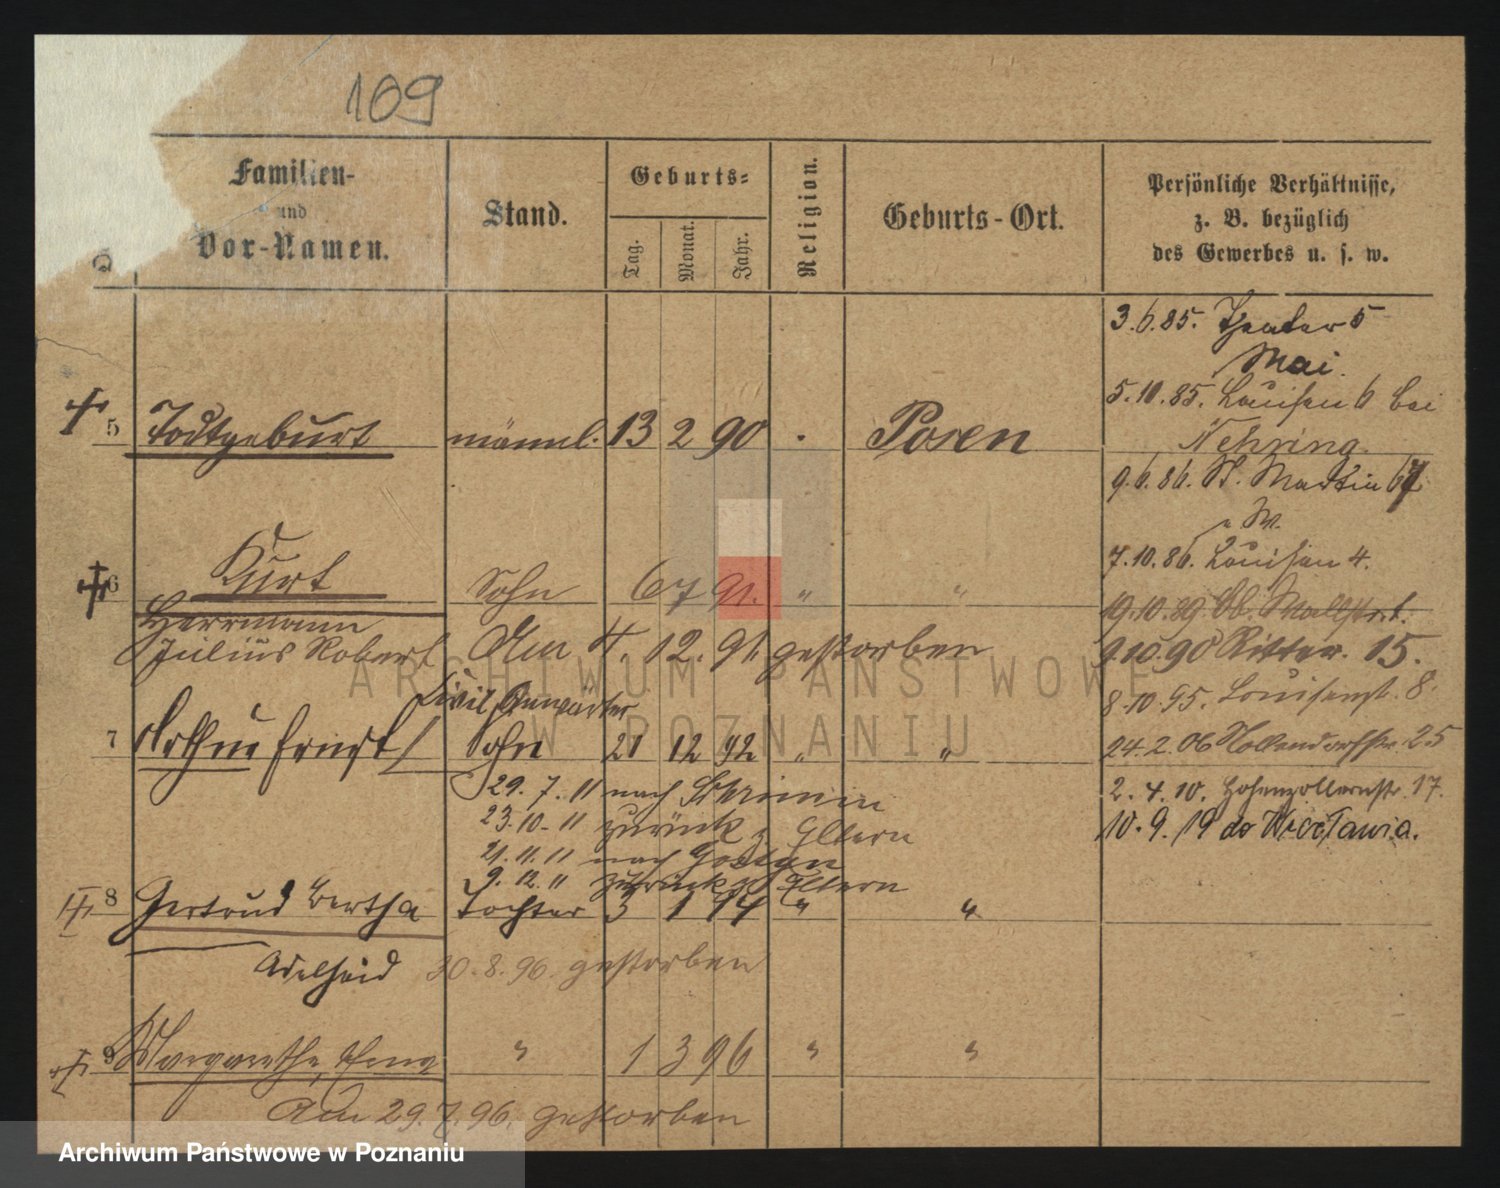 109
Familien-
und
Vor-Namen.
Stand.
Geburts-
Tag.
Monat.
Jahr.
Religion.
Geburts-Ort.
Persönliche Verhältnisse,
z. B. bezüglich
des Gewerbes u. s. w.
3.6.85. Theater 5
Mai.
5.10.85. Louisen 6 bei
Nehring.
5 Todtgeburt männl. 13 2 90 Posen
9.6.86. St. Martin 67
7.10.86. Louisen 4.
6 Kurt Sohn 6 7 91. " "
Herrmann
Julius Robert Am 4. 12. 91. gestorben
9.10.90 Ritter. 15.
8.10.95. Louisenst. 8.
Civil Anwärter
7 Arthur Ernst Sohn 21 12 92 " "
24.2.06 Hollendorfstr. 25
29. 7. 11 nach Schrimm
2. 4. 10. Hohenzollernstr. 17.
23.10. 11 zurück z. Eltern
10. 9. 19 do Wrocławia.
21. 11. 11 nach Gostyn
9. 12. " zurück z. Eltern
8 Gertrud Bertha Tochter 3 1 94 " "
Adelheid 30.8.96. gestorben
9 Margarethe, " 1 3 96 " "
Am 29.7.96. gestorben
ARCHIWUM PAŃSTWOWE
W POZNANIU
Archiwum Państwowe w Poznaniu